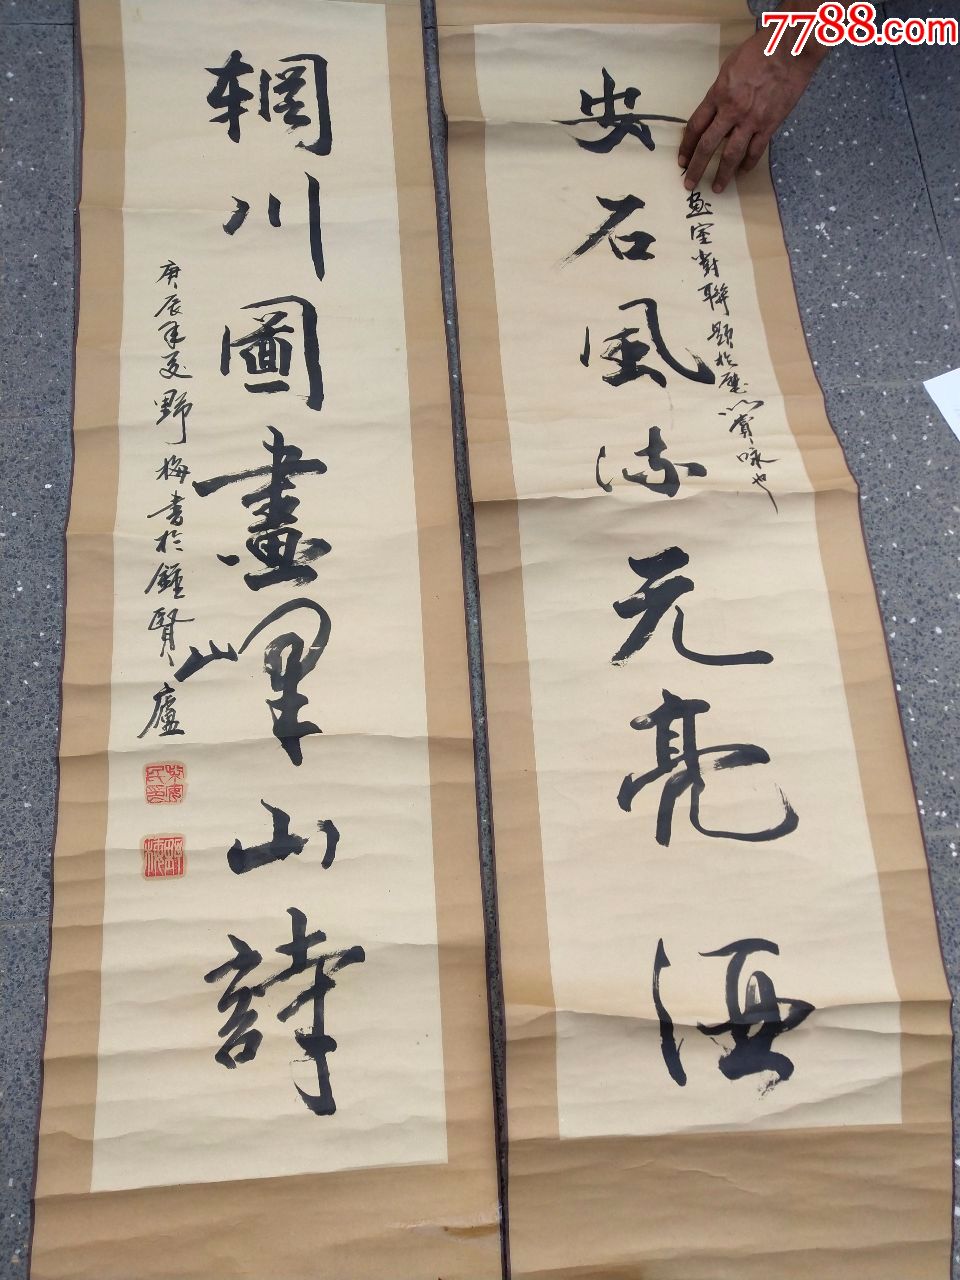 7788.com
安石風流元亮酒
画室對聯題於壁以賞味也
輞川圖畫輝山詩
庚辰年夏野梅書於鍾賢山廬